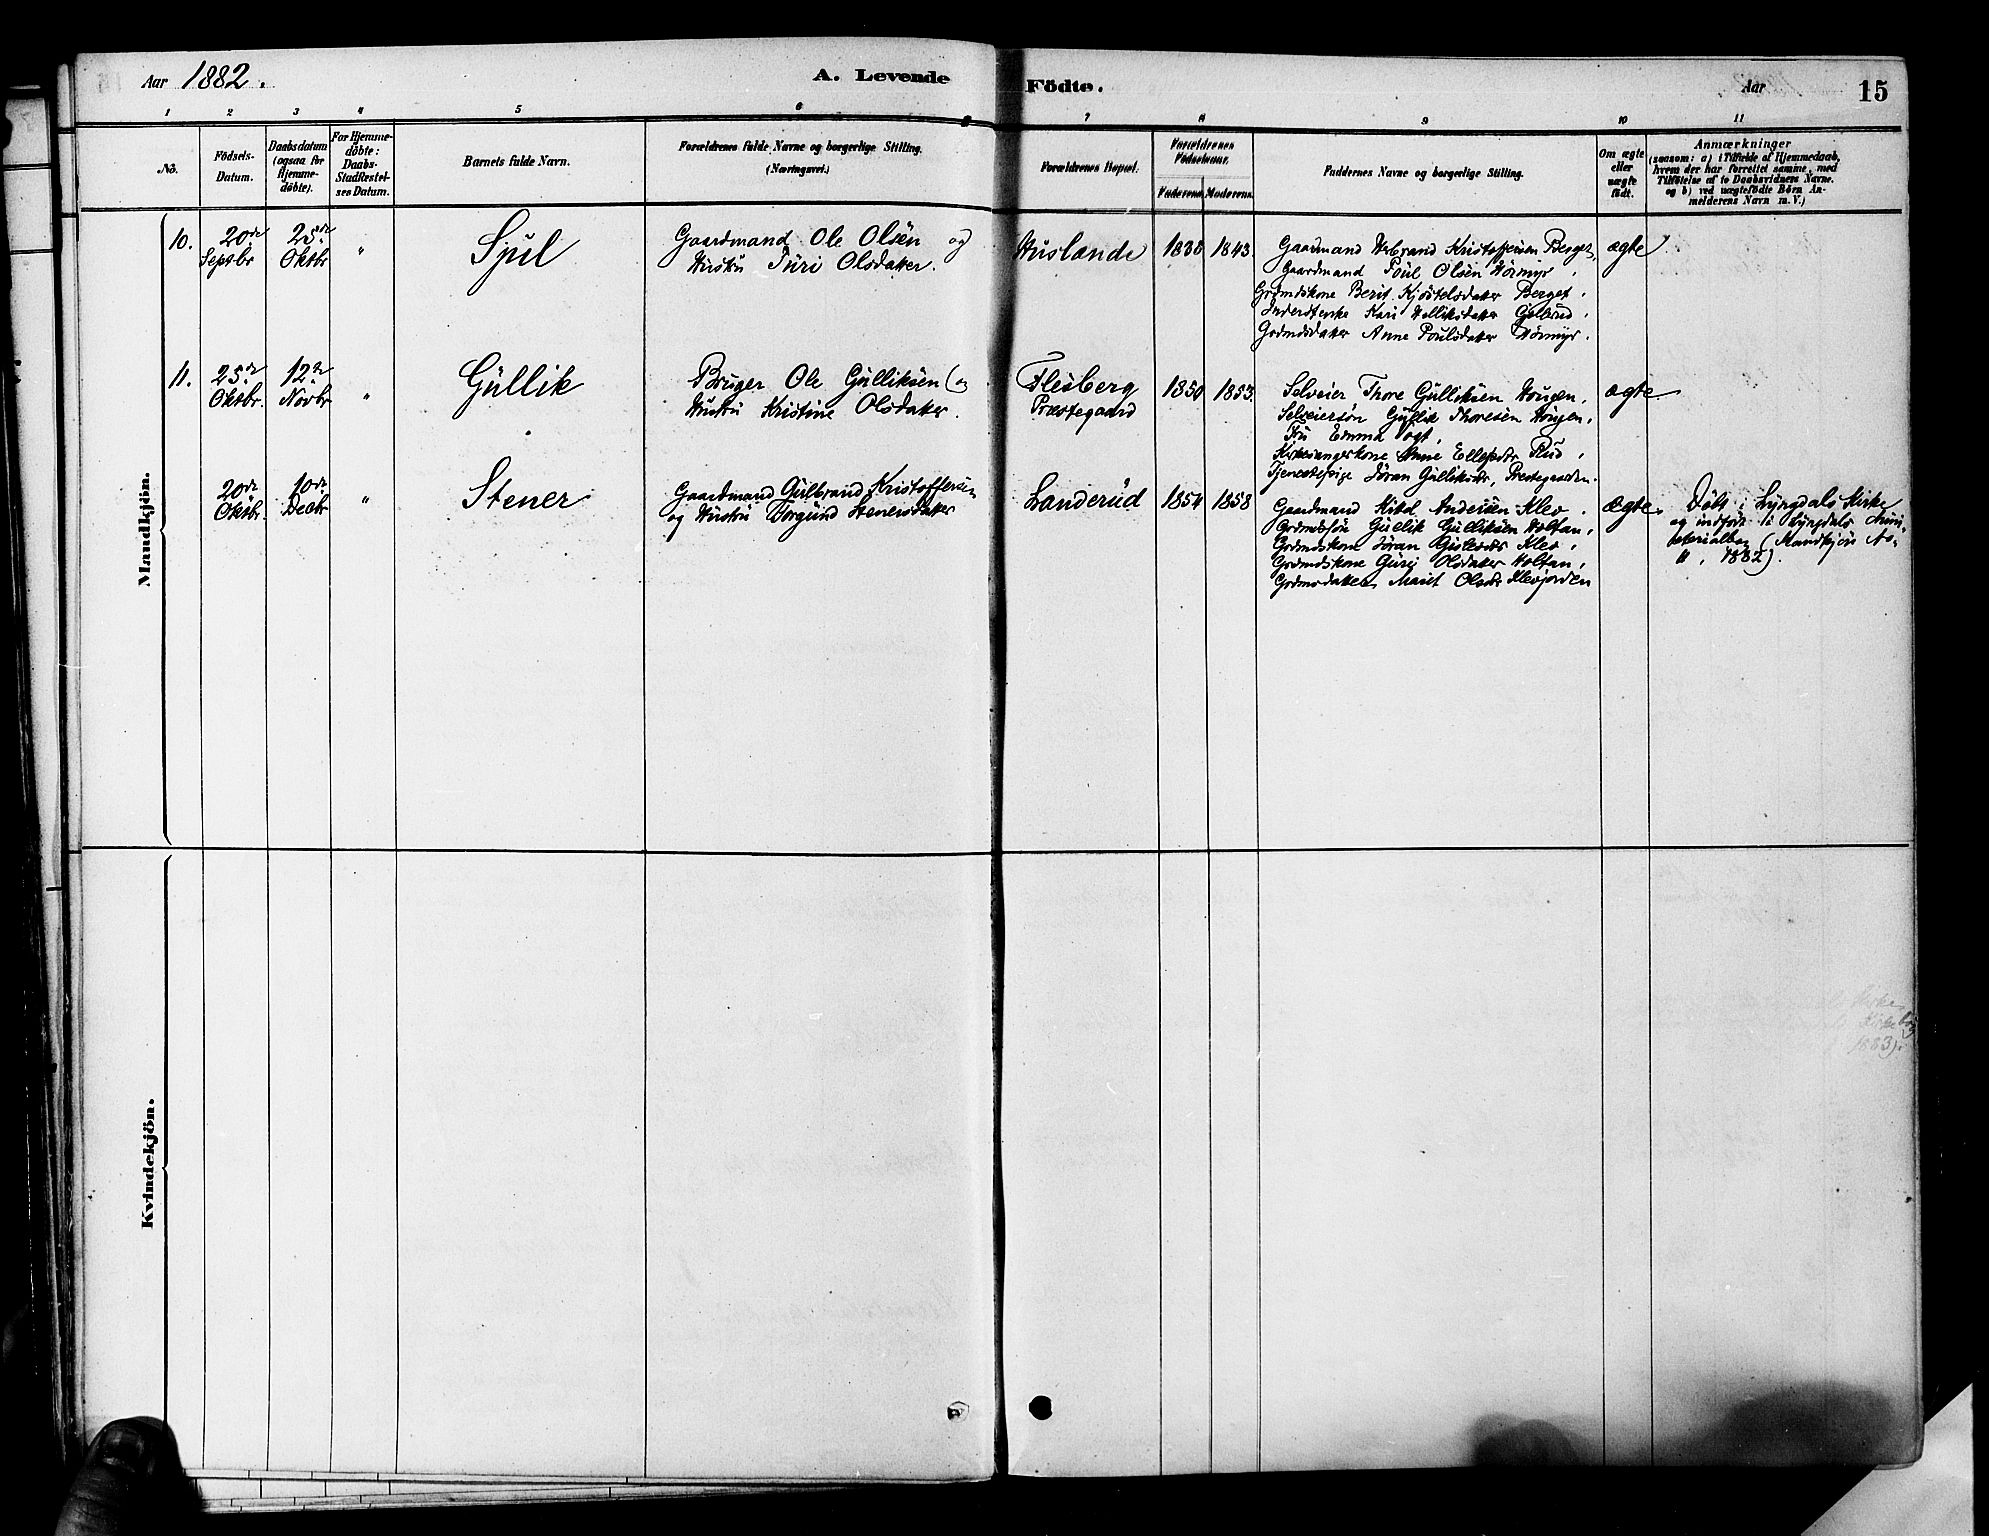 Aar 1882.
A. Levende Födte.
Aar
15
1 2 3 4 5 6 7 8 9 10 11
No.
Födsels-
Datum.
Daabsdatum
(ogsaa for
Hjemme-
döbte).
For Hjemme-
döbte:
Daabs-
Stadfæstel-
ses Datum.
Barnets fulde Navn.
Forældrenes fulde Navne og borgerlige Stilling.
(Næringsvei.)
Forældrenes Bopæl.
Forældrenes
Födselsaar.
Faderens Moderens.
Faddernes Navne og borgerlige Stilling.
Om ægte
eller
uægte
födt.
Anmærkninger
(saasom: a) i Tilfælde af Hjemmedaab,
hvem der har forrettet samme, med
Tilföielse af to Daabsvidners Navne.
og b) ved uægtefödte Börn An-
melderens Navn m. V.)
Mandkjön.
10.
20de
Septbr
25de
Oktbr
"
Sjul
Gaardmand Ole Olsen og
Hustru Turi Olsdatter.
Huslande
1838
1843.
Gaardmand Kristoffersen Berget,
Gaardmand Poul Olsen Hörmyr,
Grdmdskone Berit Kjöstelsdatter Berget,
Kari Gulliksdatter
Grdmdsdatter Anne Poulsdatter Hörmyr.
ægte
11.
25de
Oktbr.
12te
Novbr
"
Gullik
Bruger Ole Gulliksen (og
Hustru Kristine Olsdatter.
Flesberg
Præstegaard
1850
1853.
Selveier Thore Gulliksen Hougen,
Selveiersön Gullik Thoresen Hougen,
Fru Emma Vogt,
Kirkesangerkone Anne Ellefsdr Ruud,
Tjenestepige Jöran Gulliksdr, Prestegaarden.
ægte
20de
Oktbr.
10de
Decbr
"
Stener
Gaardmand Gulbrand Kristoffersen
og Hustru Torgund Stenersdatter
Landerud
1854
1858
Gaardmand Kitel Andersen Klev.
Grdmdssön Gullik Gulliksen Holtan,
Grdmdskone Jöran Klev,
Grdmdskone Guri Olsdatter Holtan,
Grdmdsdatter Marit Olsdr Klevjorden
ægte.
Döbt i Lyngdals Kirke
og indfört i Lyngdals Mini-
sterialbog (Mandkjön No.
11, 1882).
Kvindekjön.
Kirke
1883).